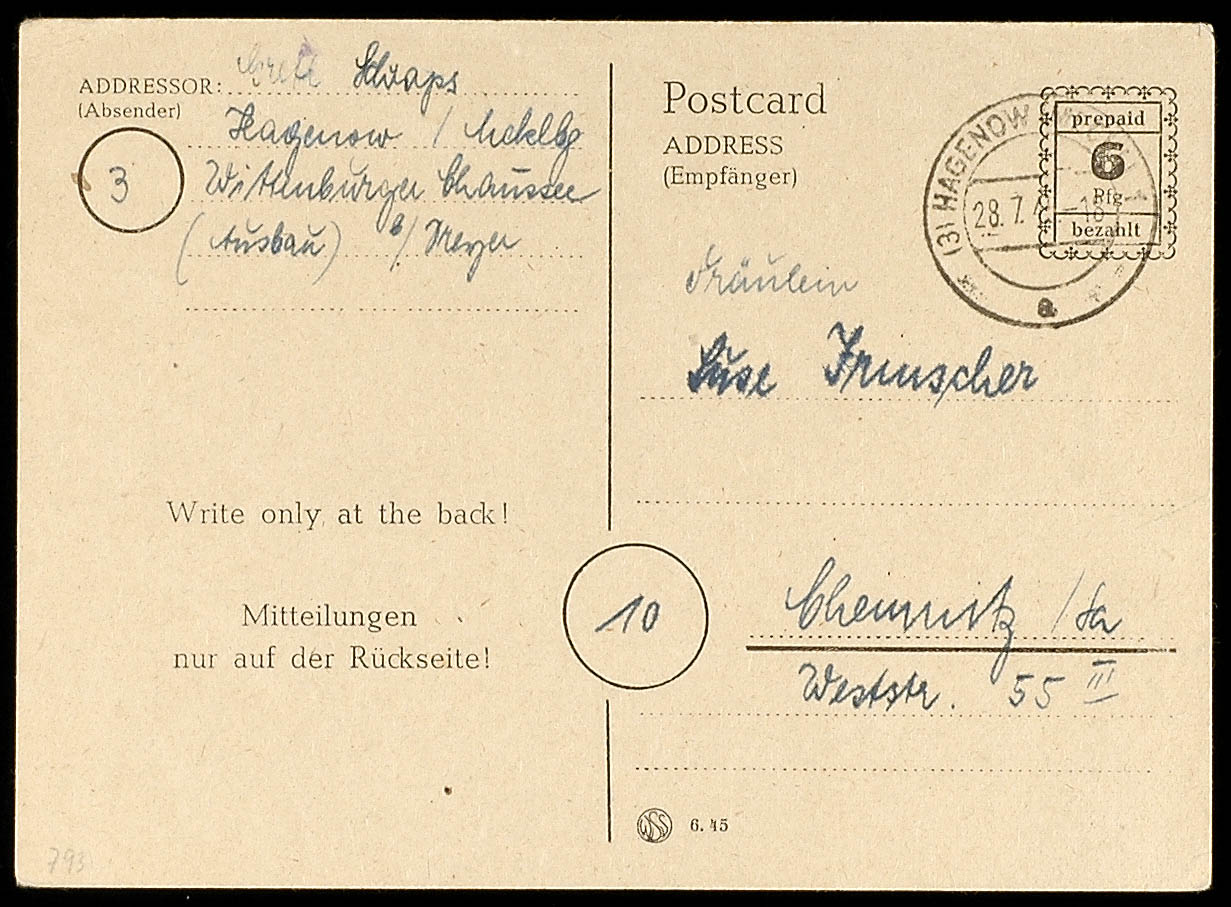 ADDRESSOR: Schaaps
(Absender)
Hagenow / Mecklbg
3
Wittenburger Chaussee
(Ausbau) b/ Meyer
Write only at the back!
Mitteilungen
nur auf der Rückseite!
793
Postcard
ADDRESS
(Empfänger)
(3) HAGENOW
28.7.
a
prepaid
6
Pfg
bezahlt
Fräulein
Suse Irmscher
10
Chemnitz /Sa
Weststr. 55 III
WSS 6. 45